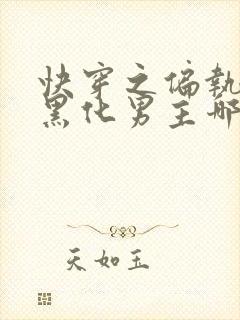 快穿之偏执
黑化男主哪
天如玉